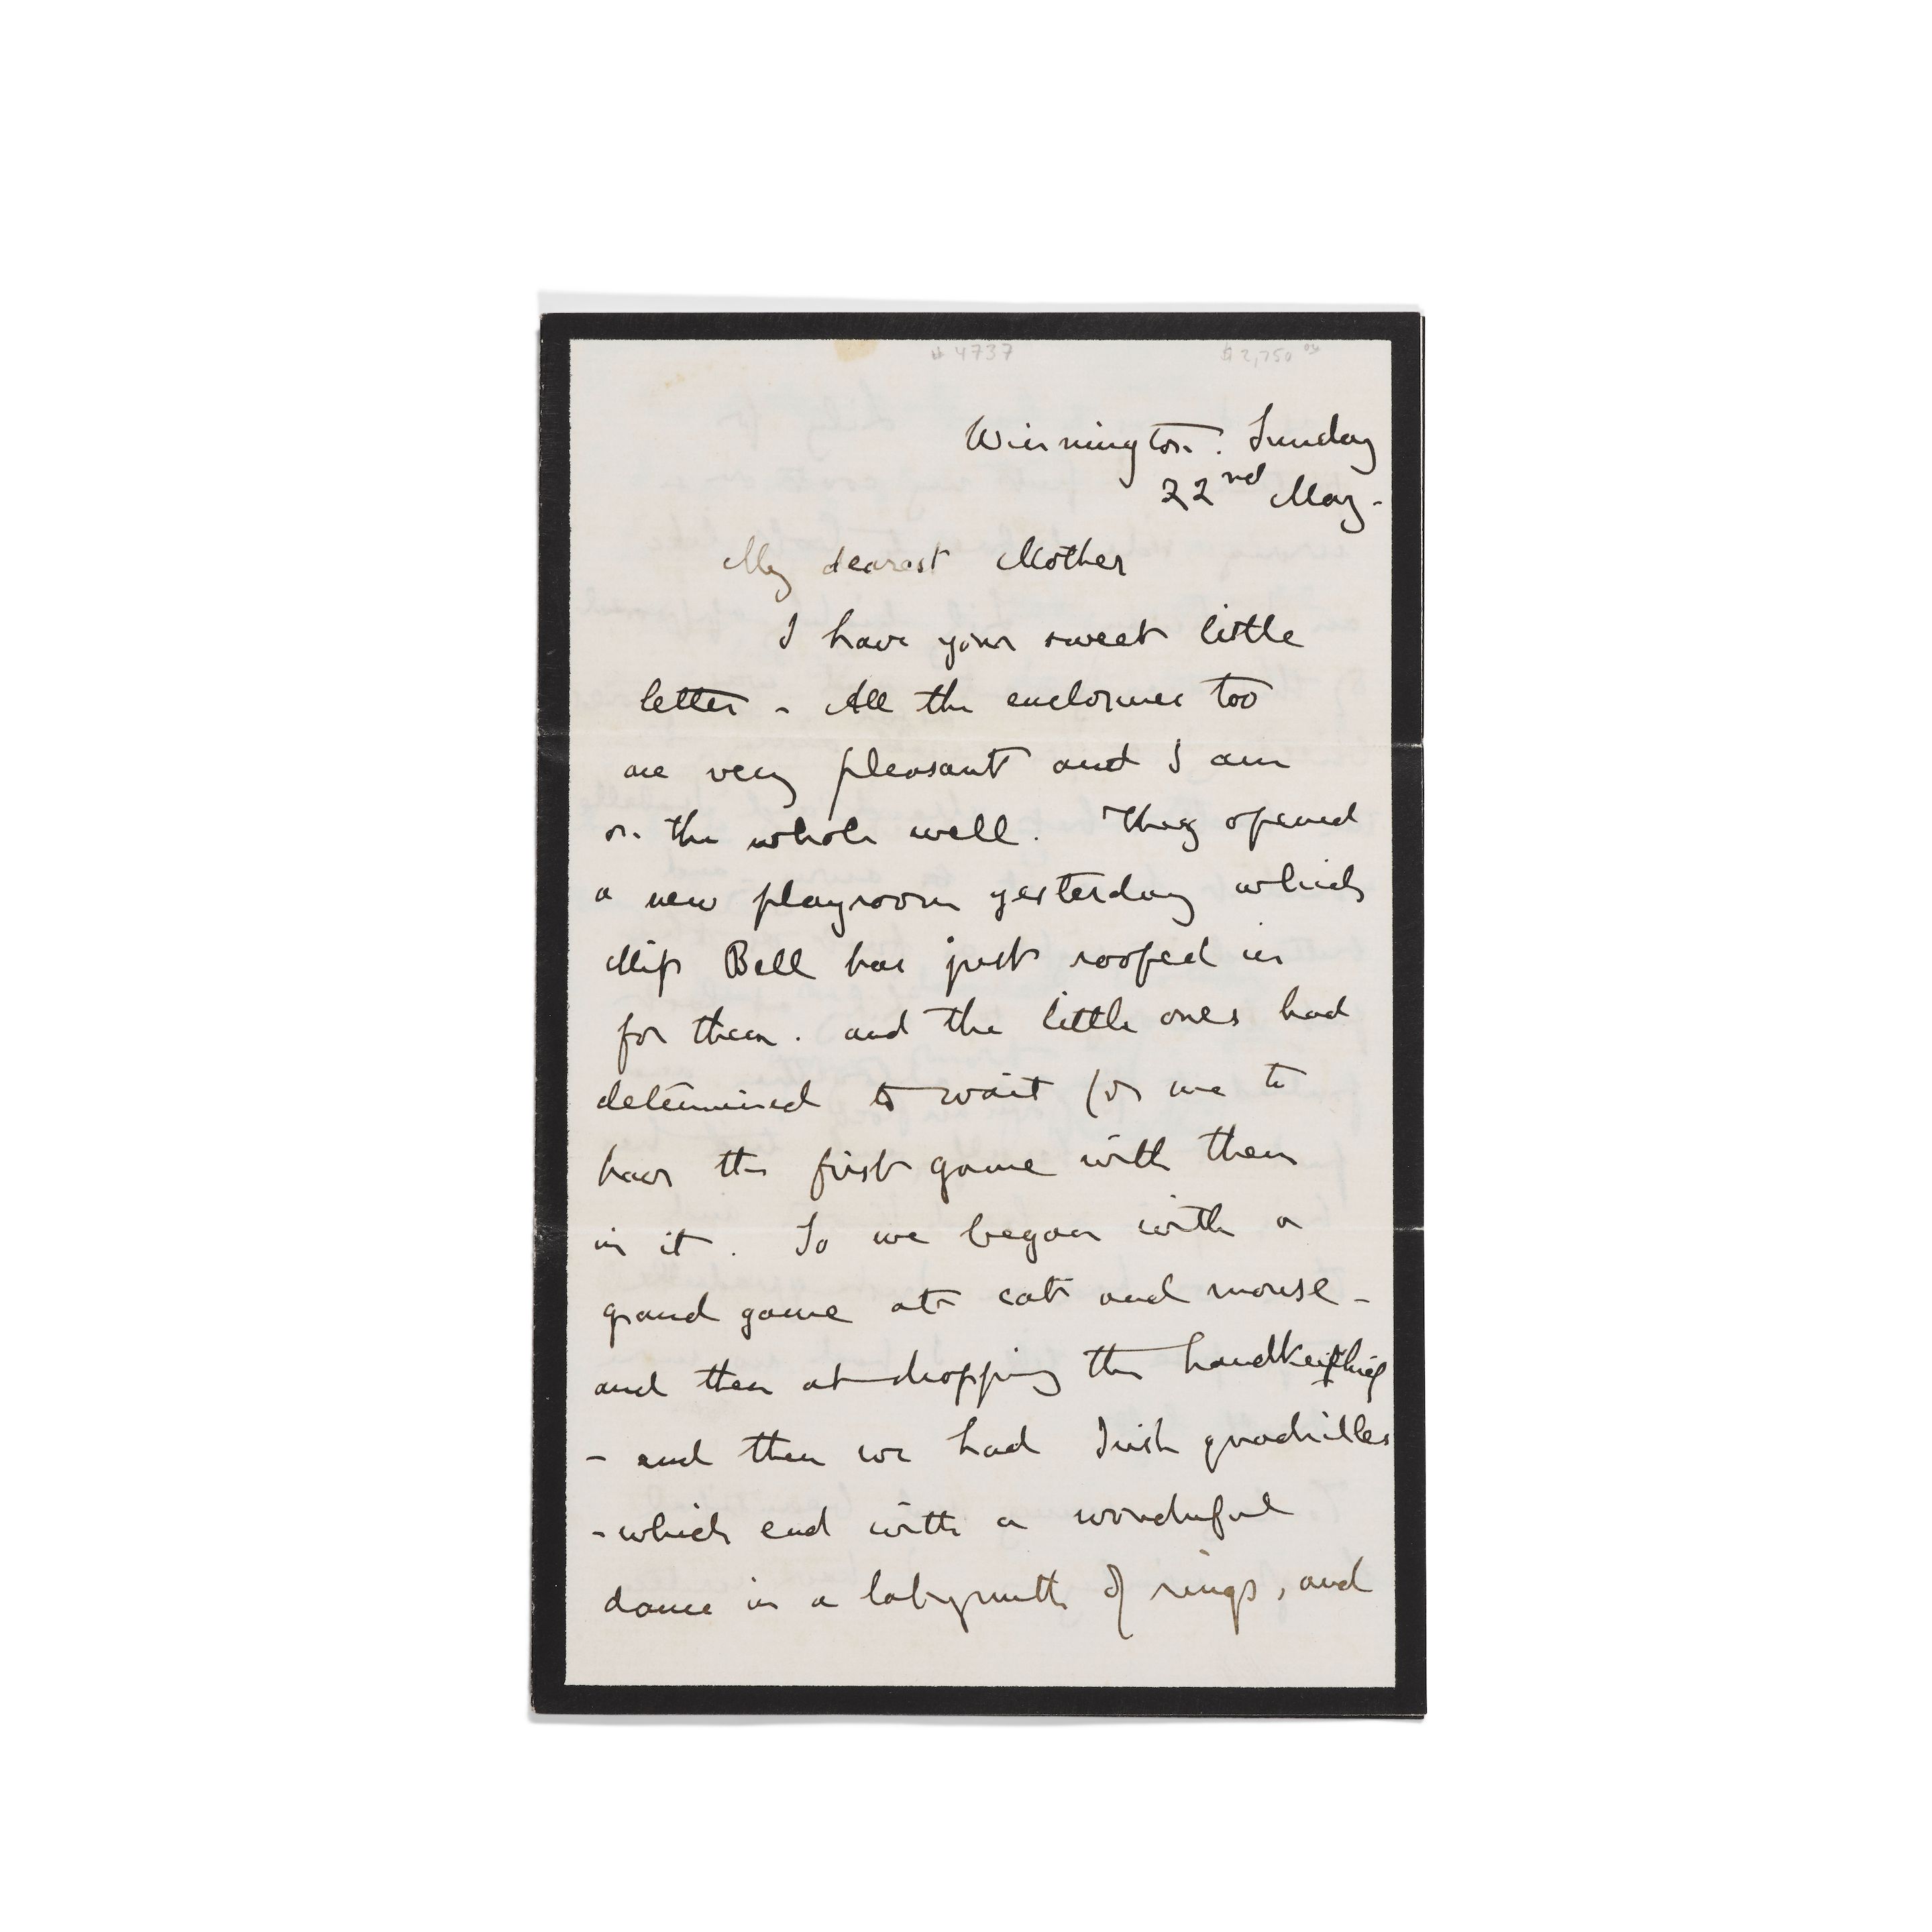 # 4737 $2,750 00
Winnington. Sunday
22nd May -
My dearest Mother
I have your sweet little
letter - All the enclosures too
are very pleasant and I am
on the whole well. They opened
a new playroom yesterday which
Miss Bell has just roofed in
for them. and the little ones had
determined to wait for me to
have the first game with them
in it. So we began with a
grand game at cat and mouse -
and then at dropping the handkerchief
- and then we had Irish quadrilles
- which end with a wonderful
dance in a labyrinth of rings, and